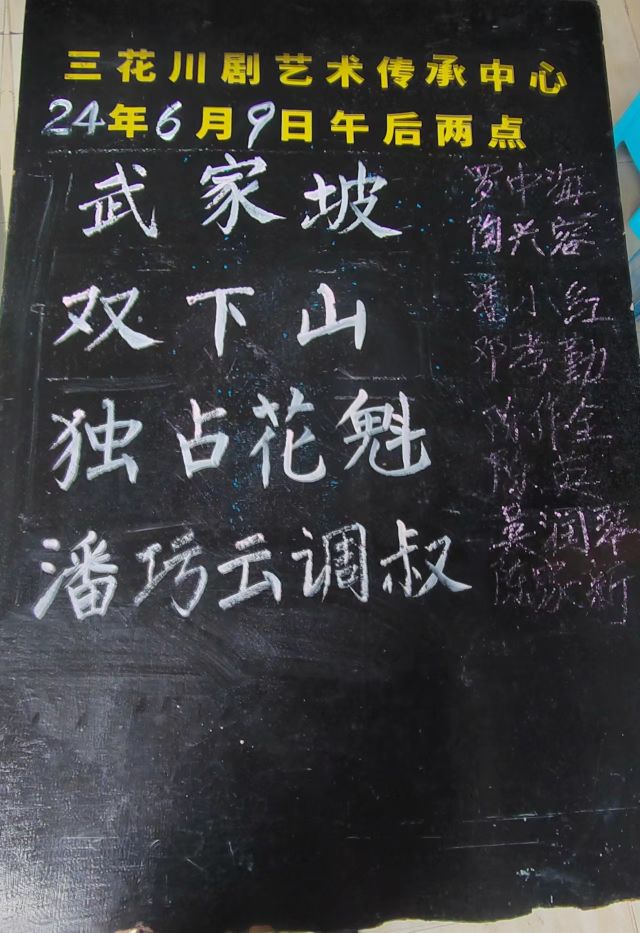 三花川剧艺术传承中心
24年6月9日午后两点
武家坡
罗中海
陶兴容
双下山
潘小红
邓孝勤
独占花魁
陈
潘巧云调叔
吴润琴
陈家新